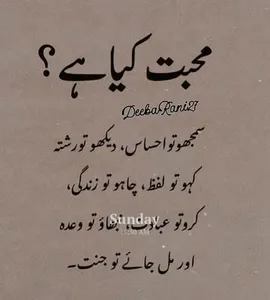 محبت کیا ہے؟
DeebaRani27
سمجھو تو احساس، دیکھو تو رشتہ
کہو تو لفظ، چاہو تو زندگی،
کرو تو عبادت، نبھاؤ تو وعدہ
Sunday
اور مل جائے تو جنت۔